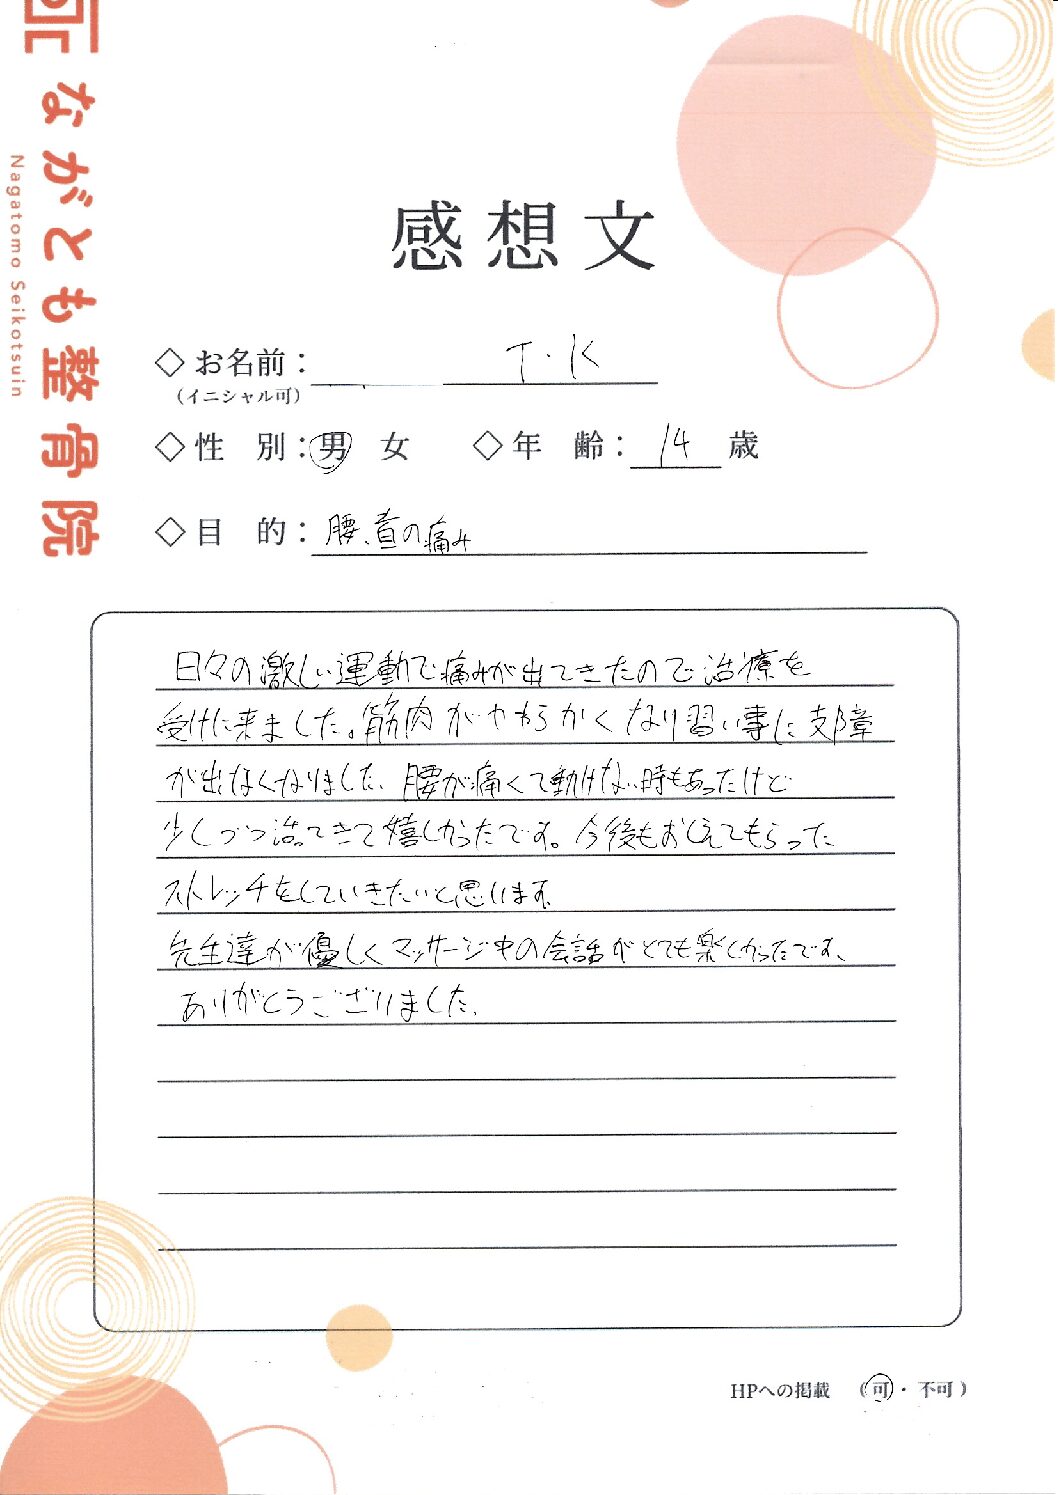 ながとも整骨院
Nagatomo Seikotsuin
感想文
◇お名前： T・K
（イニシャル可）
◇性 別：男 女 ◇年 齢： 14 歳
◇目 的： 腰、首の痛み
日々の激しい運動で痛みが出てきたので治療を
受けに来ました。筋肉がやわらかくなり習い事に支障
が出なくなりました、腰が痛くて動けない時もあったけど
少しづつ治ってきて嬉しかったです。今後もおしえてもらった
ストレッチをしていきたいと思います。
先生達が優しくマッサージ中の会話がとても楽しかったです、
ありがとうございました、
HPへの掲載 （可・不可）